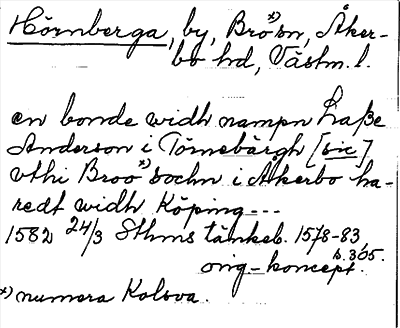 Hörnberga, by, Bro *) sn, Åker-
bo hd, Västm. l.
en bonde widh nampn Laße
Anderson i Törnebärgh [sic]
vthi Broo *) sochn i Åkerbo ha-
redt widh Köping ---
1582 24/3 Sthms tänkeb. 1578-83,
s. 365.
orig-koncept.
*) numera Kolsva.